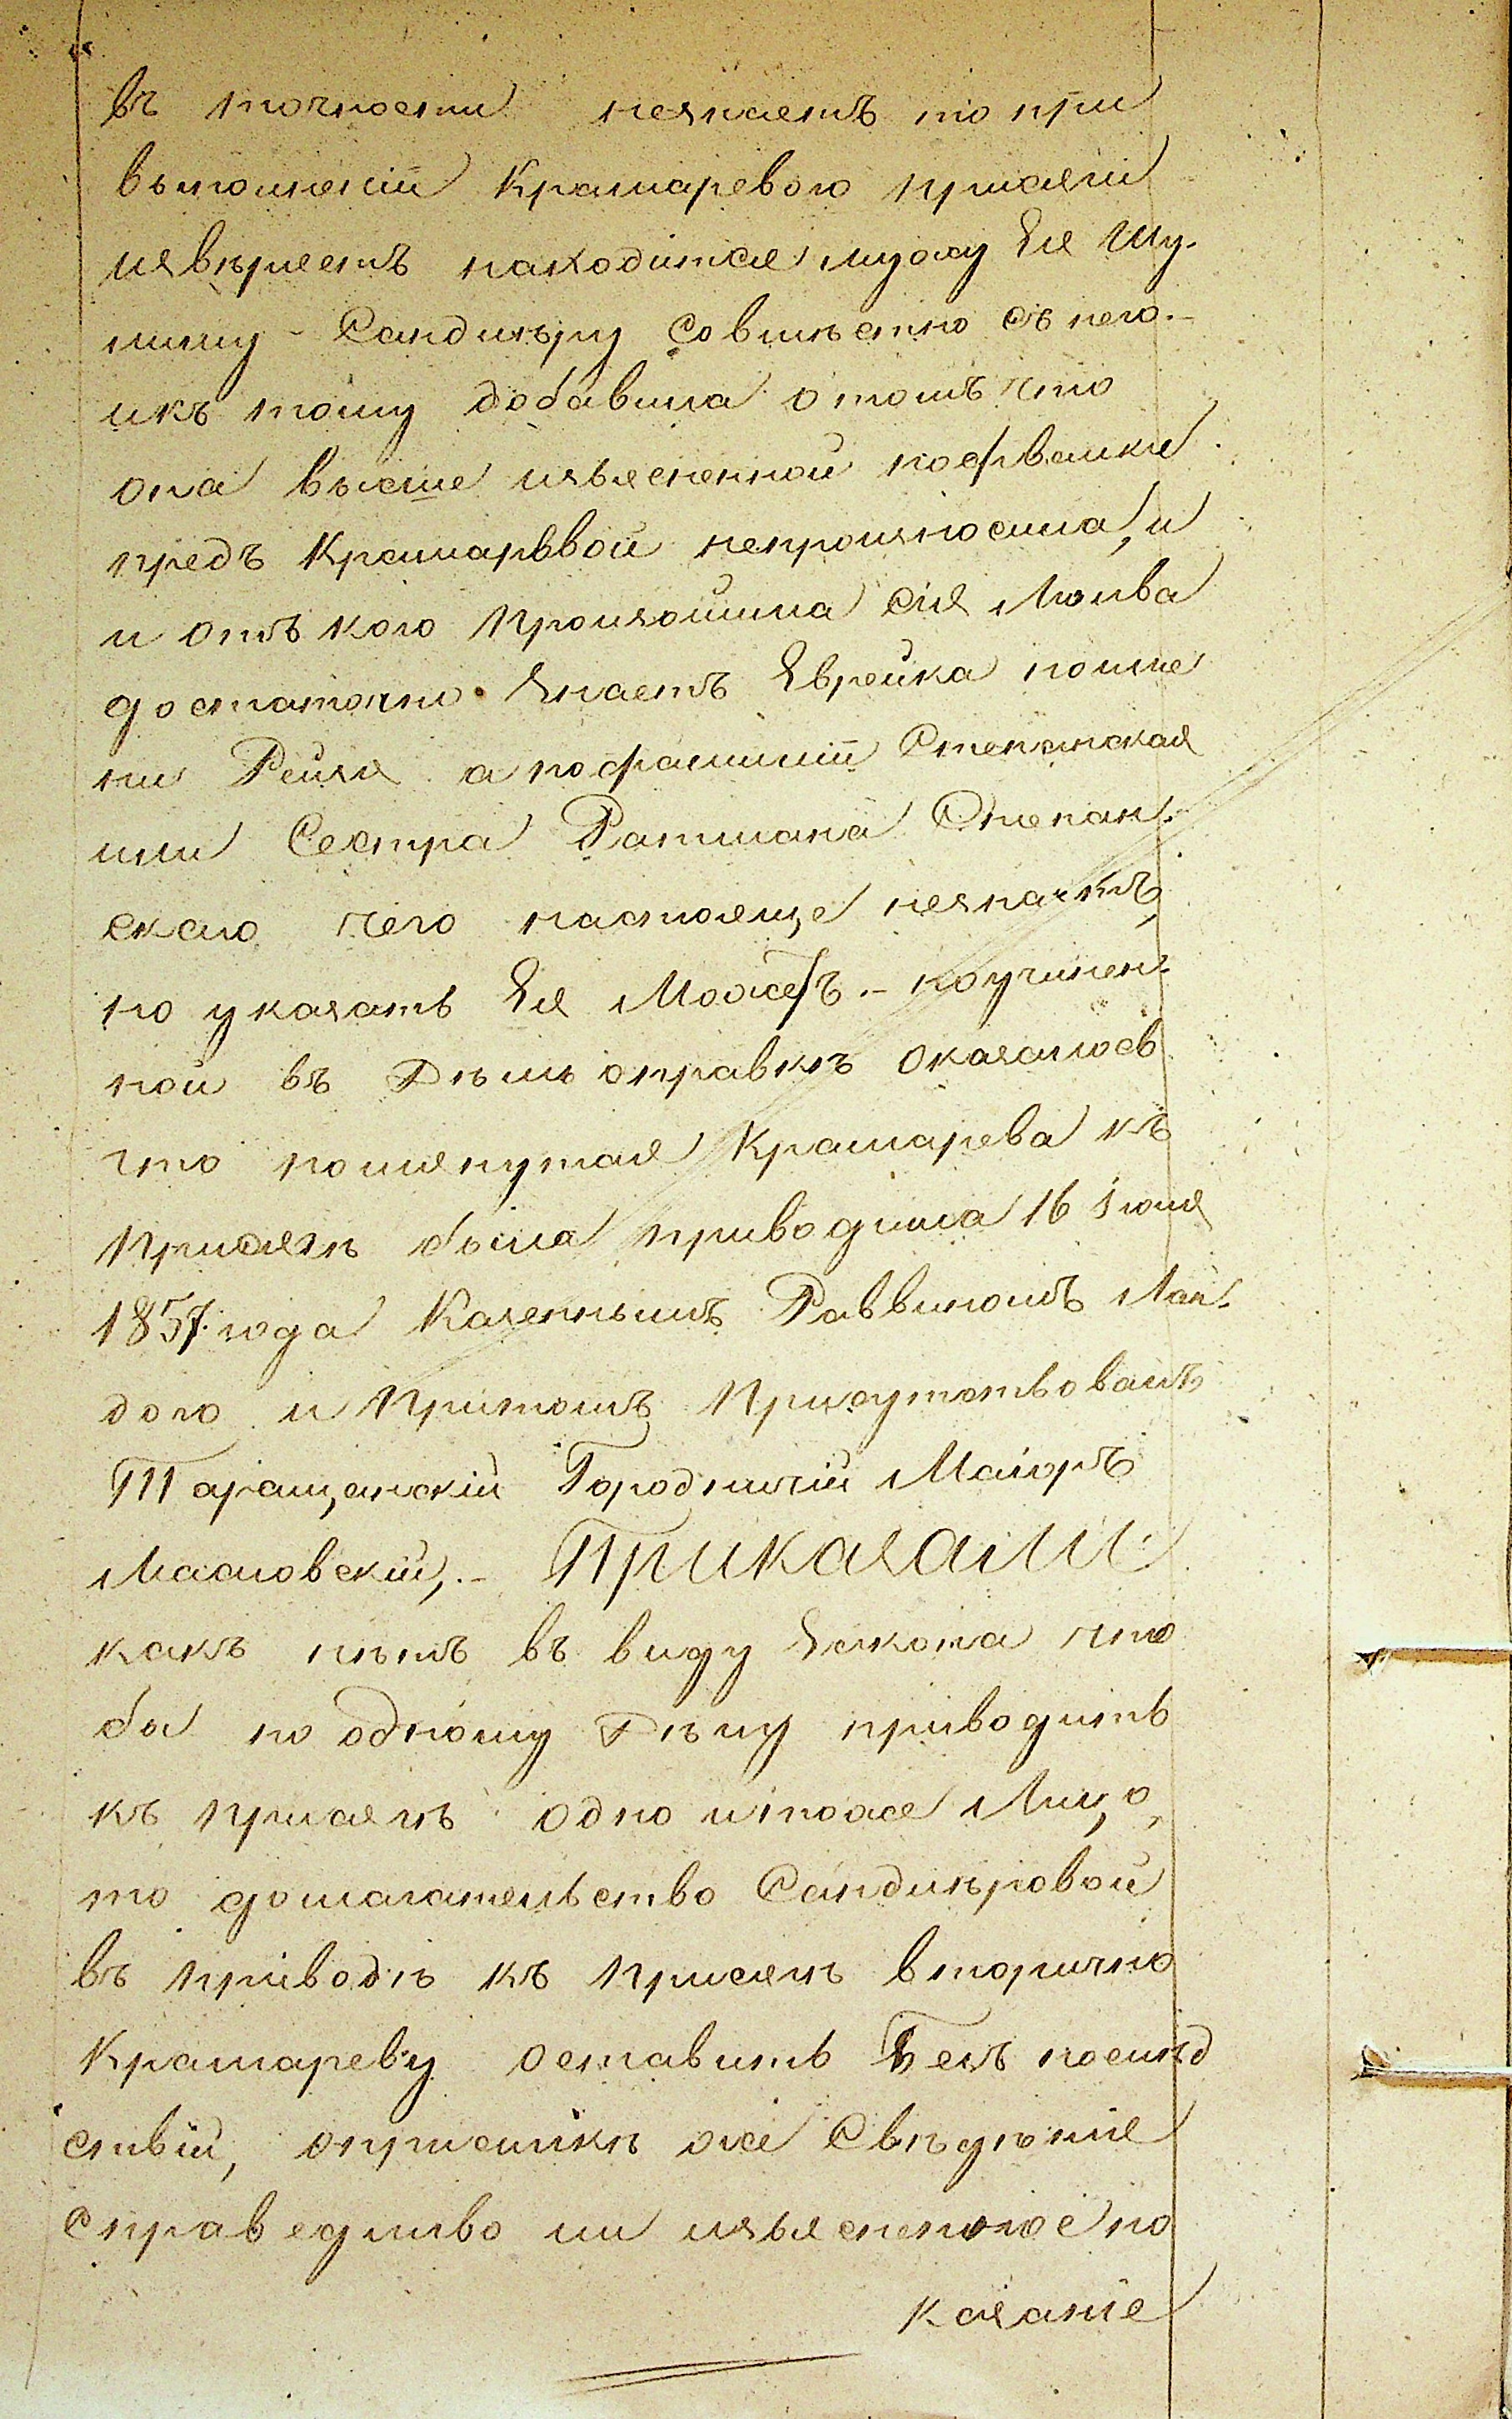 въ точности незнаетъ то при
выполненіи Крамаревою присяги
извѣряетъ находится мужу Ея Шу-
лиму Сандлѣру совмѣстно съ него.-
икъ тому добавила отомъ что
она высше изъясненной пославки
предъ Крамарѣвой непроизносила, и
и отъ кого произойшла сія Молва
достаточно Знаетъ Еврейка поиме
ни Рейзя а пофамиліи Степанская
или Сестра Ратмана Степан-
скаго чего настояще незнаетъ,
но указать Ея Можетъ.- поучинен-
ной въ Дѣлѣ справкѣ оказалось
что помянутая Крамарева къ
Присягѣ была приводима 16 Іюля
1857 года Казеннымъ Раввиномъ Лан-
дою и Притомъ Присутствовалъ
Таращанскій Городничій Маіоръ
Масловскій,.- Приказали
какъ нѣтъ въ виду Закона что
бы по одному Дѣлу приводить
къ присягѣ одно итоже Лицо,
то домагательство Сандлѣровой
въ приводѣ къ присягѣ вторично
Крамареву оставить Безъ послѣд
ствій, отпискѣ же Свѣдѣніе
справедливо ли изъясненное по
казаніе